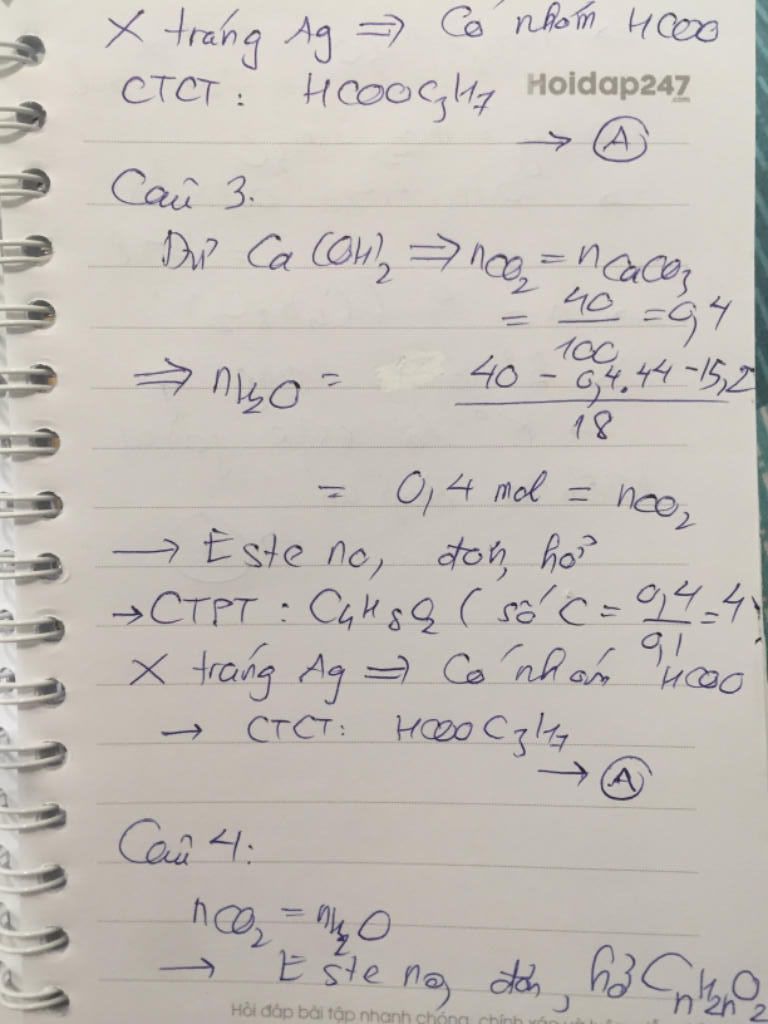 X tráng Ag => Có nhóm HCOO
CTCT: HCOOC3H7
Hoidap247
.com
→ (A)
Câu 3.
Dư Ca(OH)2 => nCO2 = nCaCO3
= 40/100 = 0,4
=> nH2O = (40 - 0,4.44 - 15,2)/18
= 0,4 mol = nCO2
→ Este no, đơn, hở
→ CTPT: C4H8O2 (số C = 0,4/0,1 = 4)
X tráng Ag => Có nhóm HCOO
→ CTCT: HCOOC3H7
→ (A)
Câu 4:
nCO2 = nH2O
→ Este no, đơn, hở CnH2nO2
Hỏi đáp bài tập nhanh chóng, chính xác và